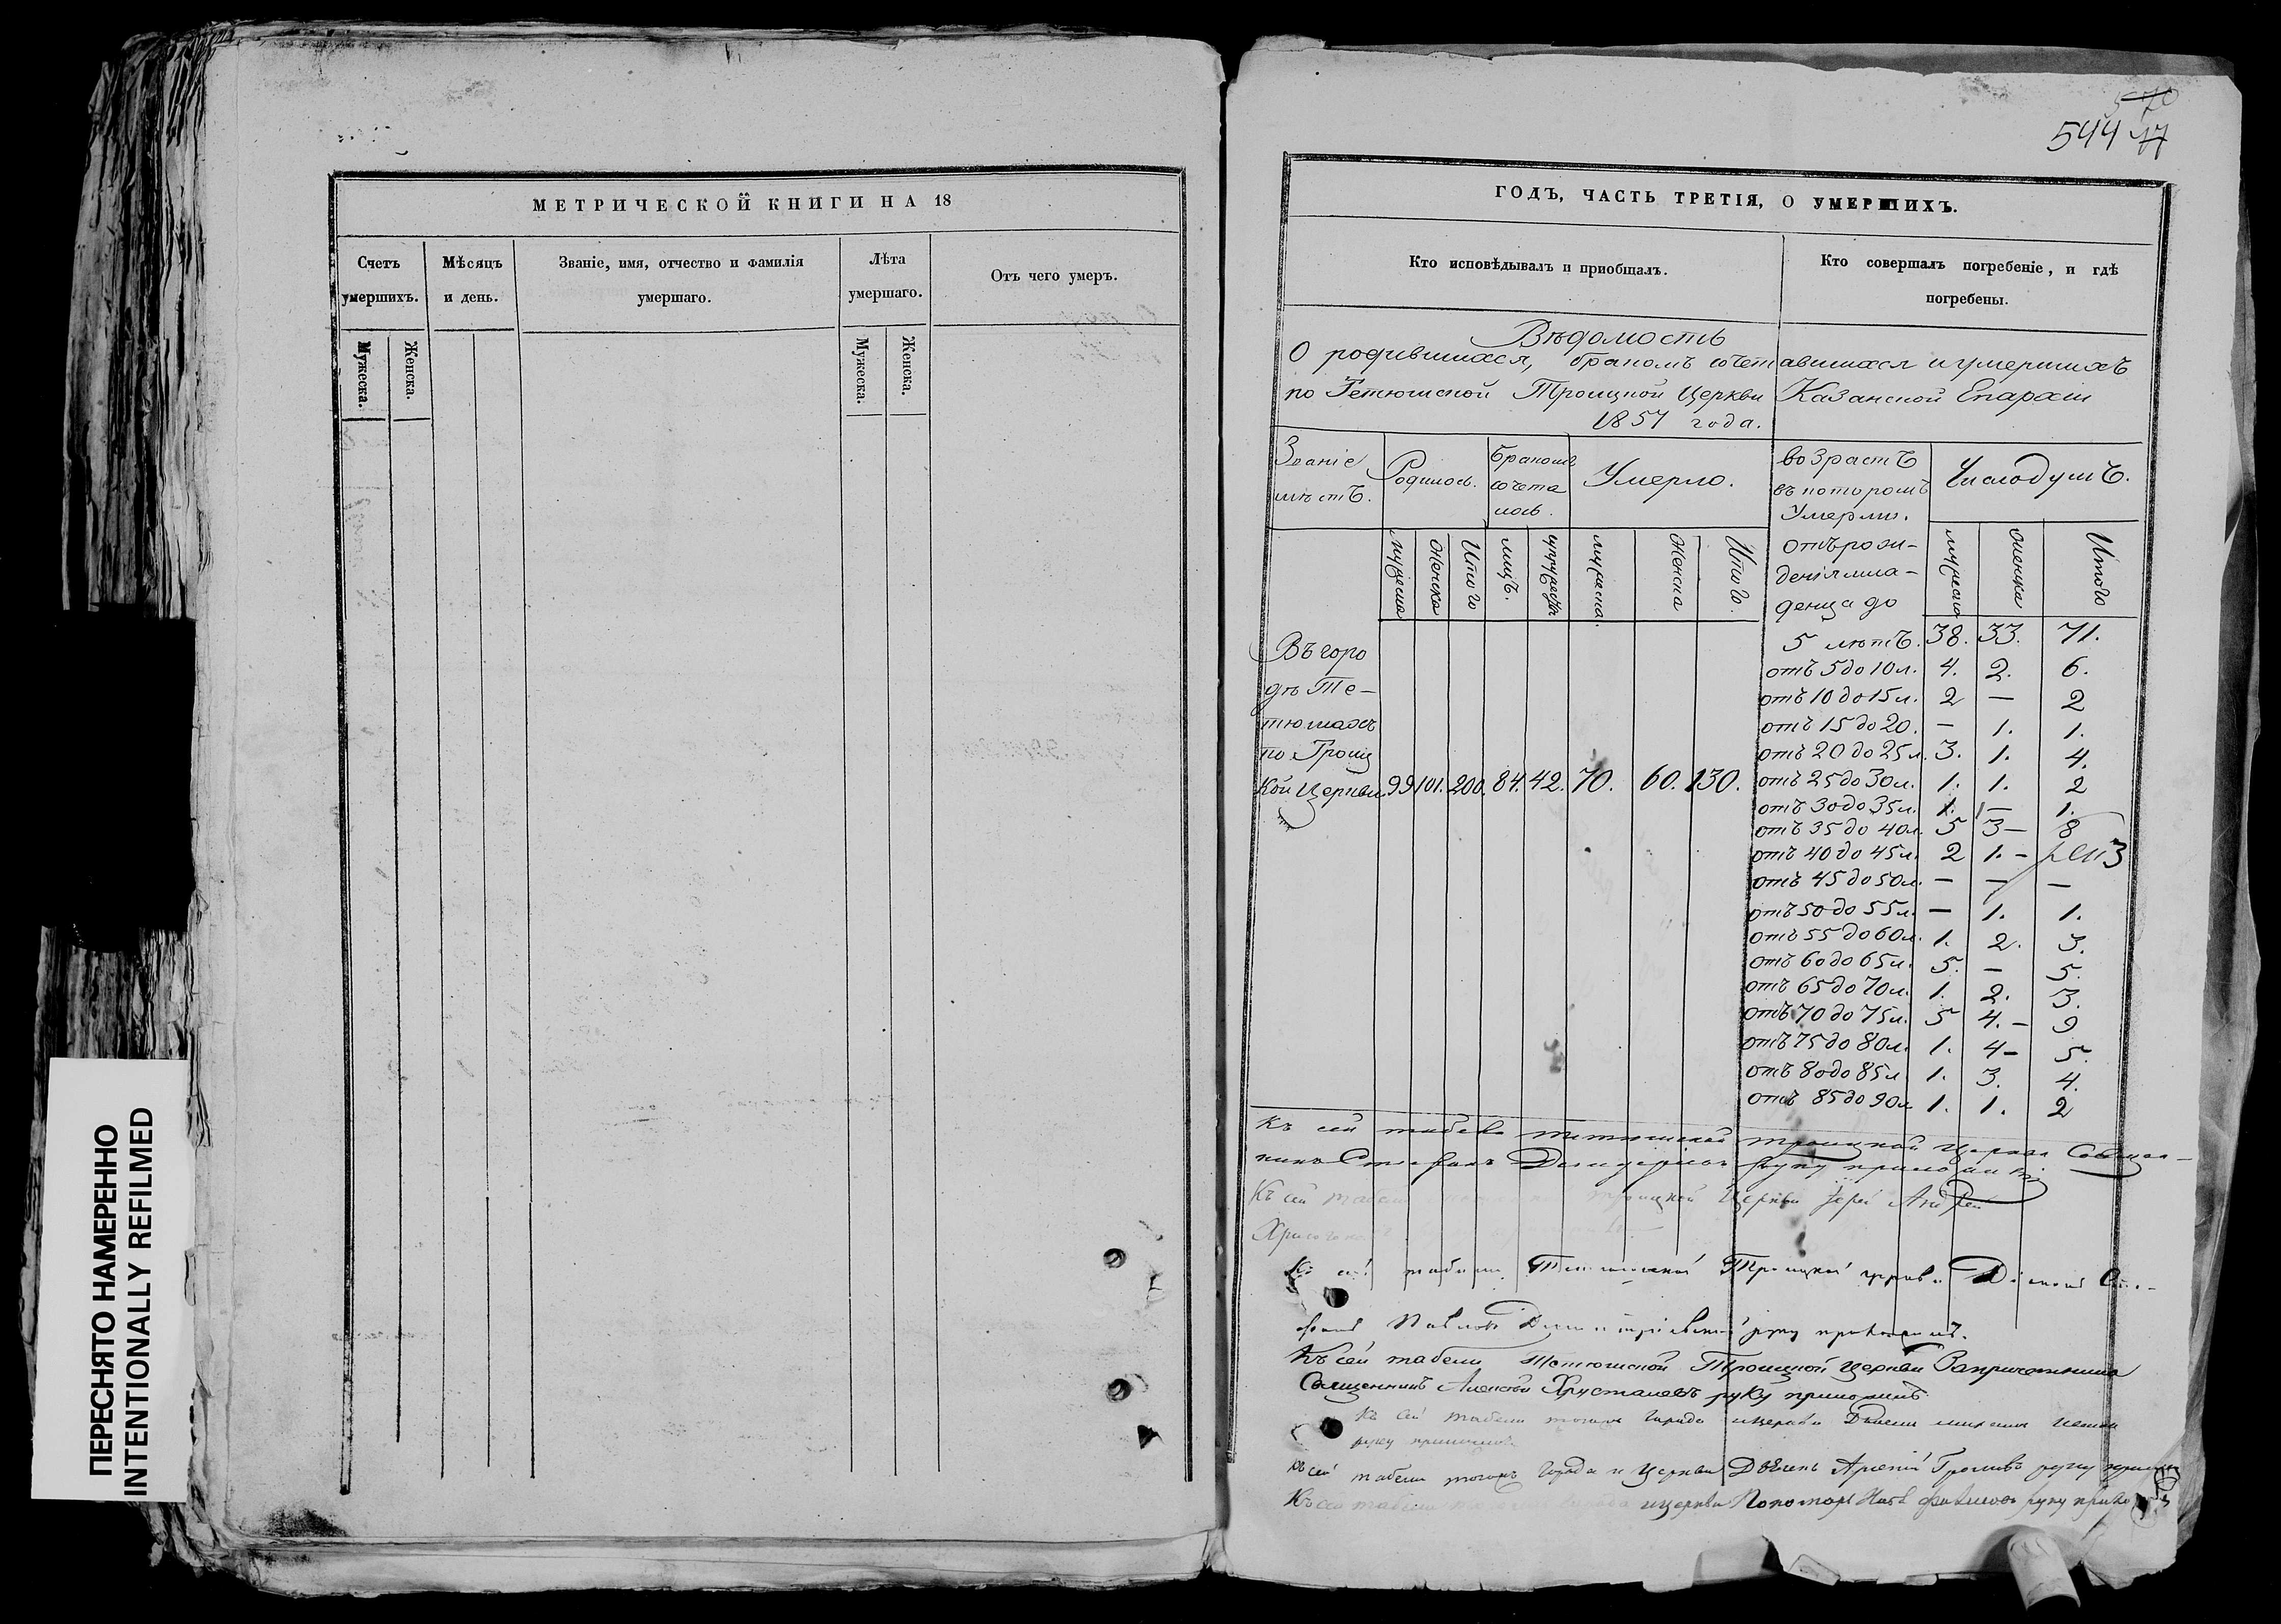 МЕТРИЧЕСКОЙ КНИГИ НА 18
Счетъ умершихъ.
Мѣсяцъ и день.
Званіе, имя, отчество и фамилія умершаго.
Лѣта умершаго.
Отъ чего умеръ.
Мужеска. Женска.
Мужеска. Женска.
ПЕРЕСНЯТО НАМЕРЕННО
INTENTIONALLY REFILMED
544
ГОДЪ, ЧАСТЬ ТРЕТІЯ, О УМЕРШИХЪ.
Кто исповѣдывалъ и пріобщалъ.
Кто совершалъ погребеніе, и гдѣ погребены.
Вѣдомость
О родившихся, бракомъ сочетавшихся и умершихъ
по Тетюшской Троицкой Церкви Казанской Епархіи
1857 года.
Званіе мѣстъ.
Родилось.
Бракомъ сочеталось.
Умерло.
возрастъ въ которомъ Умерли.
Число душъ.
мужеска Женска Итого
лицъ. супружествъ
мужеска. Женска Итого.
отъ рождения младенца до
мужеска женска Итого
5 лѣтъ. 38. 33. 71.
отъ 5 до 10 л. 4. 2. 6.
отъ 10 до 15 л. 2 — 2
отъ 15 до 20. — 1. 1.
отъ 20 до 25 л. 3. 1. 4.
Въ горо
дѣ Те-
тюшахъ
по Троиц
кой Церкви. 99. 101. 200. 84. 42. 70. 60. 130.
отъ 25 до 30 л. 1. 1. 2
отъ 30 до 35 л. 1. — 1.
отъ 35 до 40 л. 5 3 — 8
отъ 40 до 45 л. 2 1. — 3
отъ 45 до 50 л. — — —
отъ 50 до 55 л. — 1. 1.
отъ 55 до 60 л. 1. 2. 3.
отъ 60 до 65 л. 5. — 5.
отъ 65 до 70 л. 1. 2. 3.
отъ 70 до 75 л. 5 4. — 9
отъ 75 до 80 л. 1. 4 — 5.
отъ 80 до 85 л 1. 3. 4.
отъ 85 до 90 л 1. 1. 2
Къ сей табели Тетюшской Троицкой Церкви Священ-
никъ Стефанъ руку приложилъ
Къ сей табели Троицкой Церкви Іерей Андрей
Къ сей табели Тетюшской Троицкой церкви Діаконъ
Павловъ руку приложилъ.
Къ сей табели Тетюшской Троицкой Церкви Запричетника
Священникъ Алексѣй Хрусталевъ руку приложилъ.
Къ сей табели тогожъ Города и церкви
руку приложилъ
Къ сей табели тогожъ Города и Церкви Дьячекъ Арсеній Громовъ руку
Къ сей табели и церкви Пономарь руку